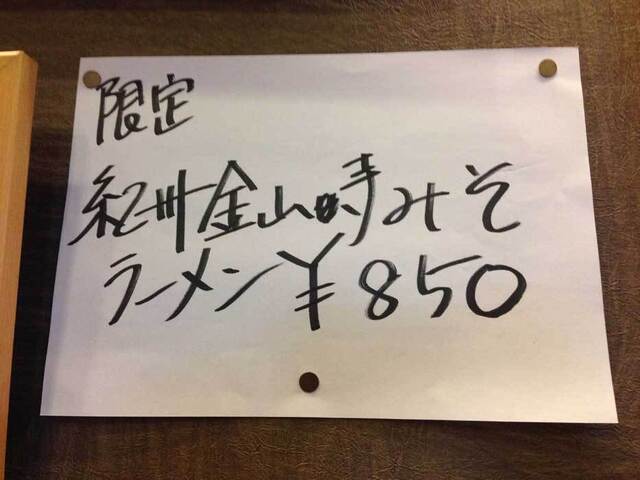 限定
紀州金山寺みそ
ラーメン¥850